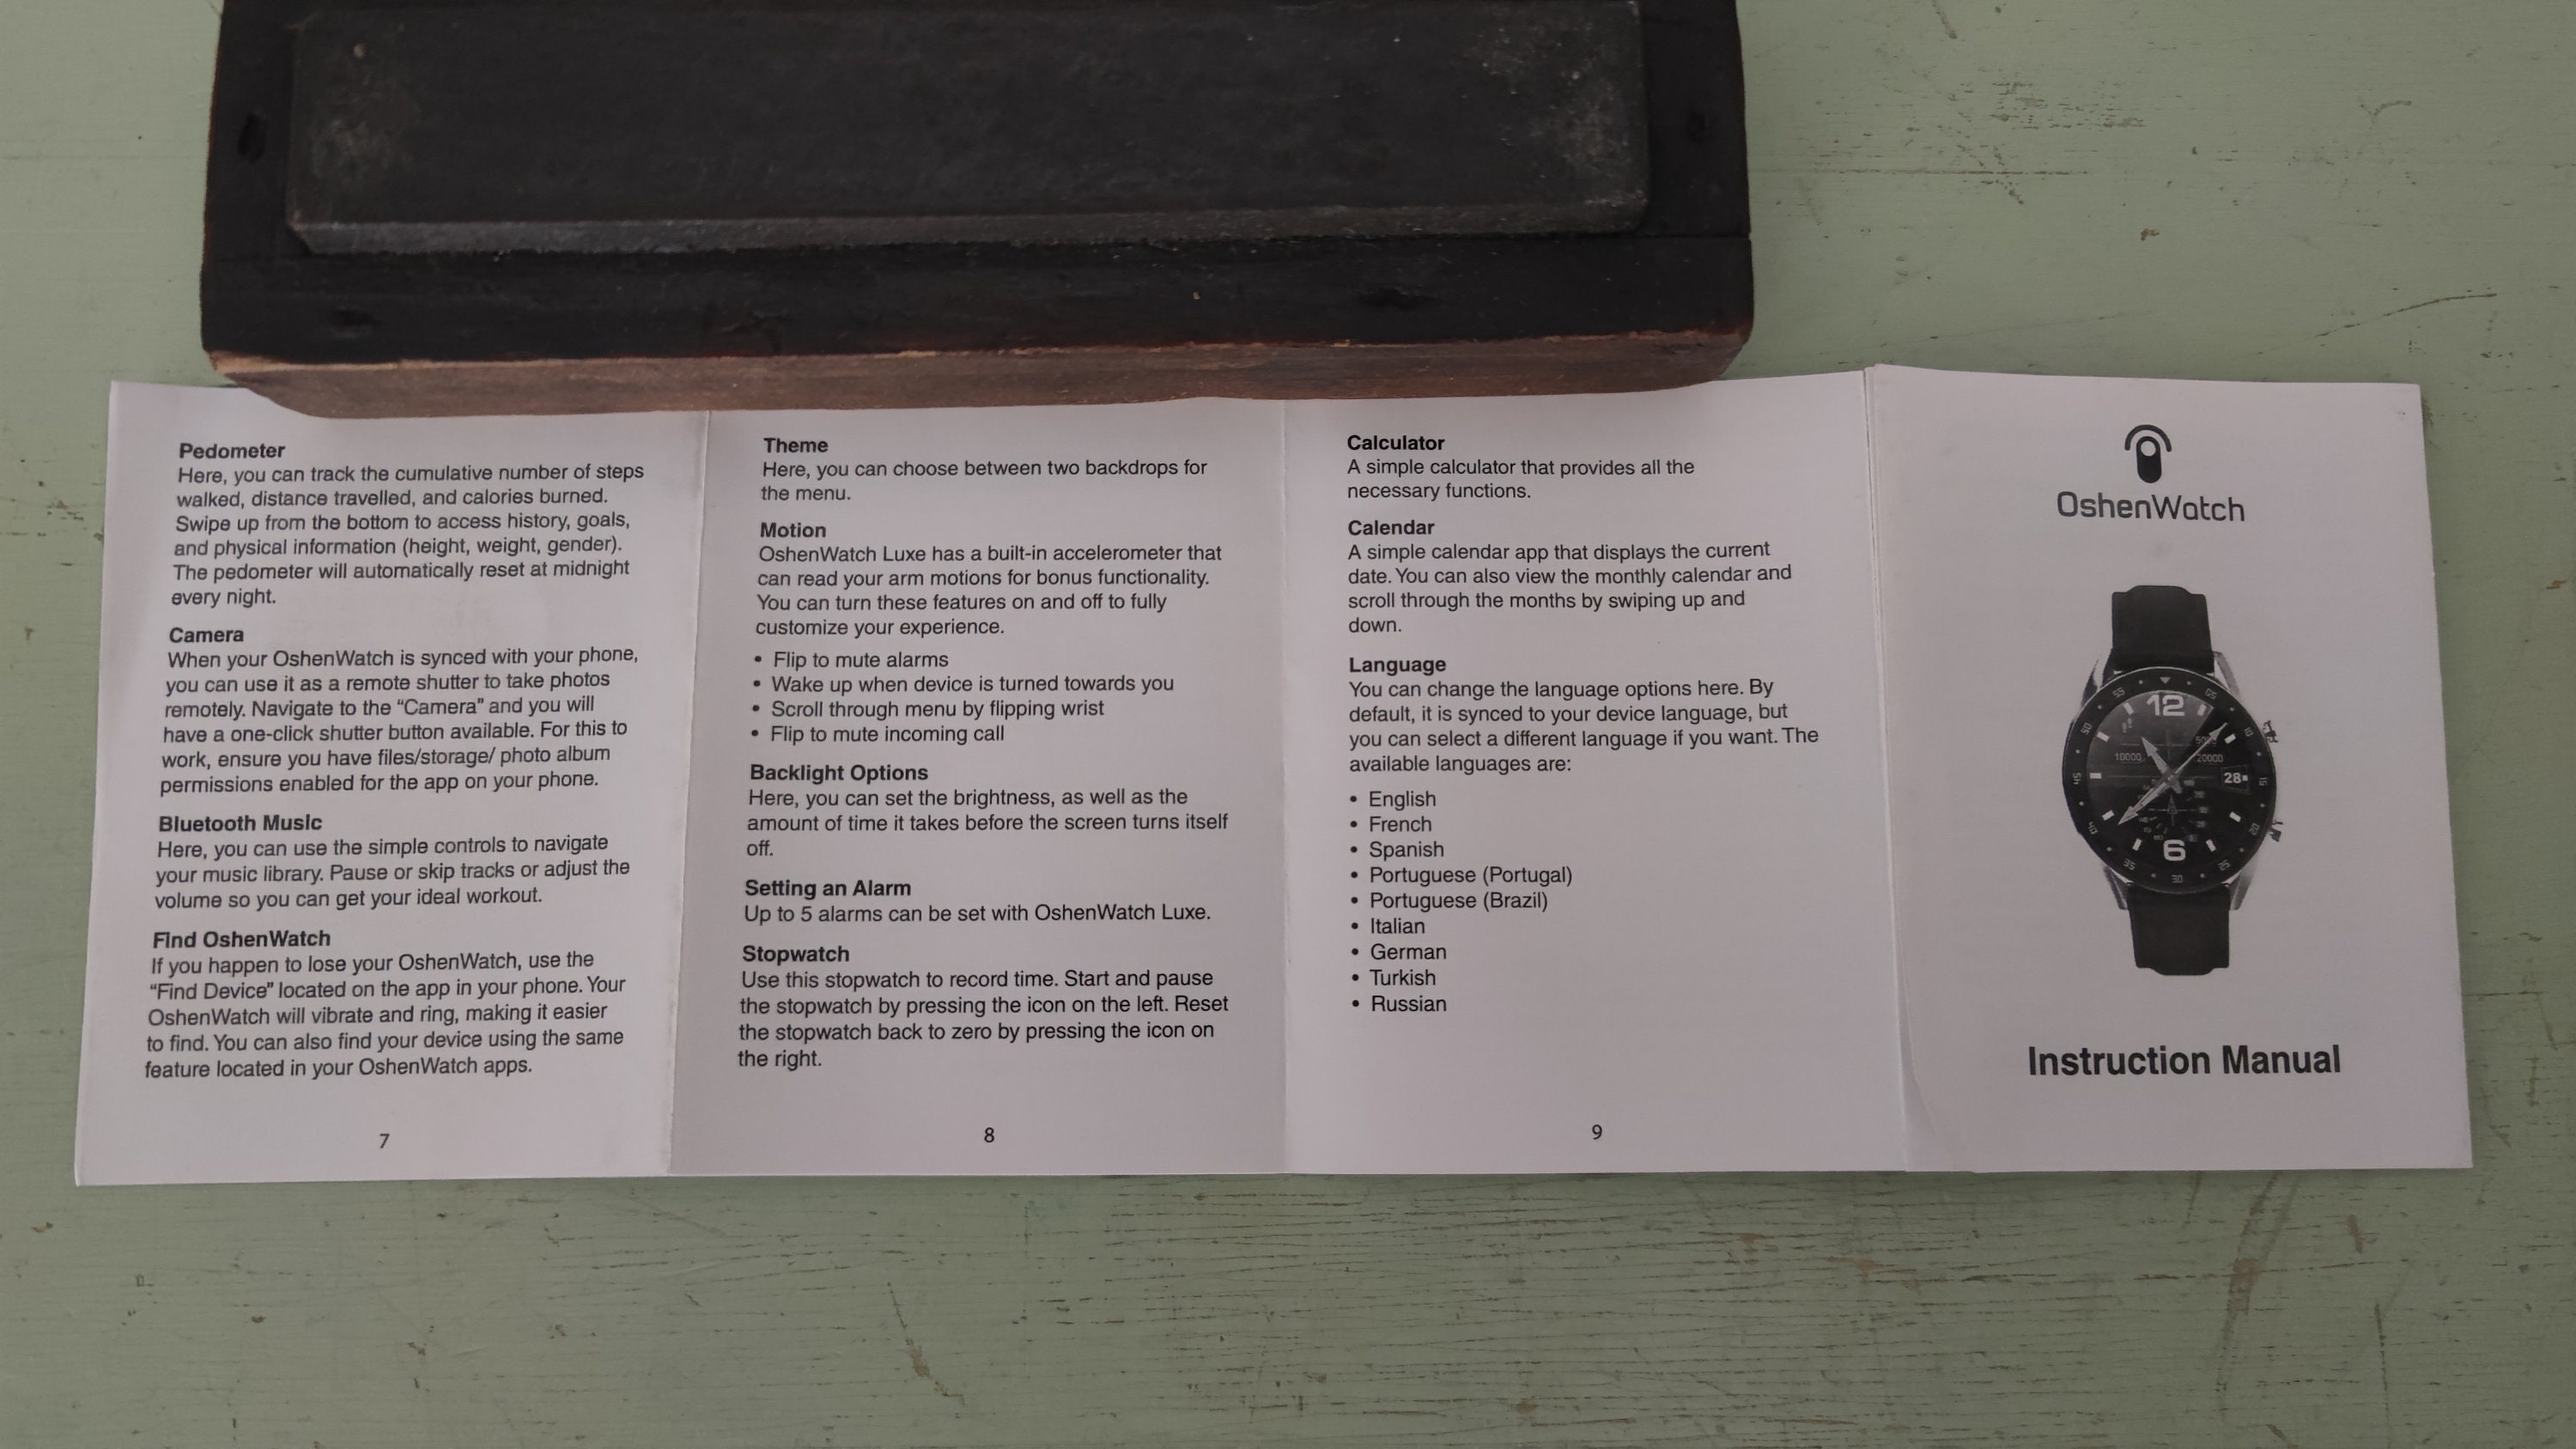 Pedometer
Here, you can track the cumulative number of steps
walked, distance travelled, and calories burned.
Swipe up from the bottom to access history, goals,
and physical information (height, weight, gender).
The pedometer will automatically reset at midnight
every night.
Camera
When your OshenWatch is synced with your phone,
you can use it as a remote shutter to take photos
remotely. Navigate to the “Camera” and you will
have a one-click shutter button available. For this to
work, ensure you have files/storage/ photo album
permissions enabled for the app on your phone.
Bluetooth Music
Here, you can use the simple controls to navigate
your music library. Pause or skip tracks or adjust the
volume so you can get your ideal workout.
Find OshenWatch
If you happen to lose your OshenWatch, use the
“Find Device” located on the app in your phone. Your
OshenWatch will vibrate and ring, making it easier
to find. You can also find your device using the same
feature located in your OshenWatch apps.
7
Theme
Here, you can choose between two backdrops for
the menu.
Motion
OshenWatch Luxe has a built-in accelerometer that
can read your arm motions for bonus functionality.
You can turn these features on and off to fully
customize your experience.
• Flip to mute alarms
• Wake up when device is turned towards you
• Scroll through menu by flipping wrist
• Flip to mute incoming call
Backlight Options
Here, you can set the brightness, as well as the
amount of time it takes before the screen turns itself
off.
Setting an Alarm
Up to 5 alarms can be set with OshenWatch Luxe.
Stopwatch
Use this stopwatch to record time. Start and pause
the stopwatch by pressing the icon on the left. Reset
the stopwatch back to zero by pressing the icon on
the right.
8
Calculator
A simple calculator that provides all the
necessary functions.
Calendar
A simple calendar app that displays the current
date. You can also view the monthly calendar and
scroll through the months by swiping up and
down.
Language
You can change the language options here. By
default, it is synced to your device language, but
you can select a different language if you want. The
available languages are:
• English
• French
• Spanish
• Portuguese (Portugal)
• Portuguese (Brazil)
• Italian
• German
• Turkish
• Russian
9
OshenWatch
12
10000
20000
28
6
Instruction Manual